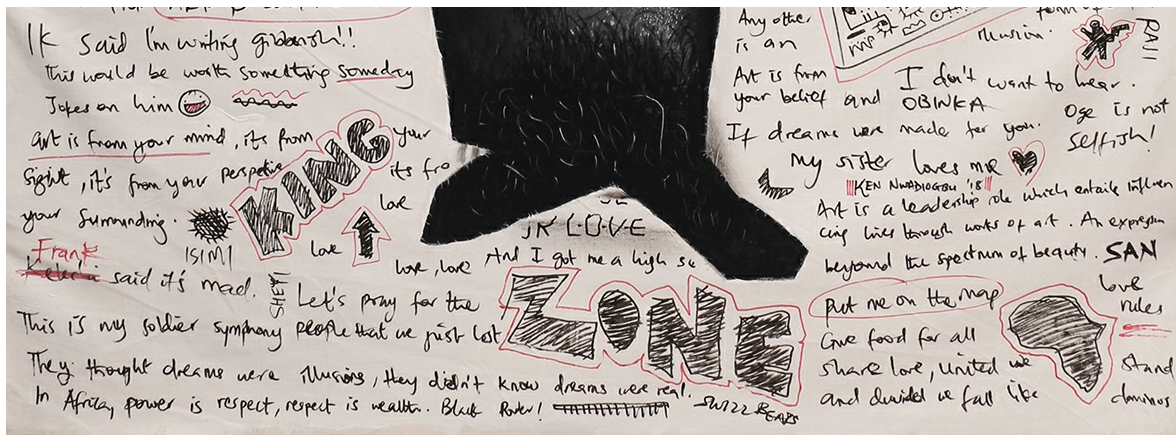 IK said I'm writing gibberish!!
This would be worth something someday
Jokes on him
Art is from your mind, it's from your
sight, it's from your perspective its fro
your surrounding.
KING
love
ISIMI
love
love, love And I got me a high
LOVE
Frank
said it's mad.
SHEYI
Let's pray for the
This is my soldier symphony people that we just lost
ZONE
They thought dreams were illusions, they didn't know dreams were real.
In Africa, power is respect, respect is wealth. Black Power!
SWIZZ BEATS
Any other
is an
illusion.
Art is from
your belief and
I don't want to hear.
OBINKA
If dreams were made for you.
Ose is not
selfish!
my sister loves me
KEN NWADIOGBU '18
Art is a leadership role which entails influen
cing lives through works of art. An expression
beyond the spectrum of beauty.
SAN
Put me on the map
love
rules
Give food for all
share love, united we stand
and divided we fall like dominos